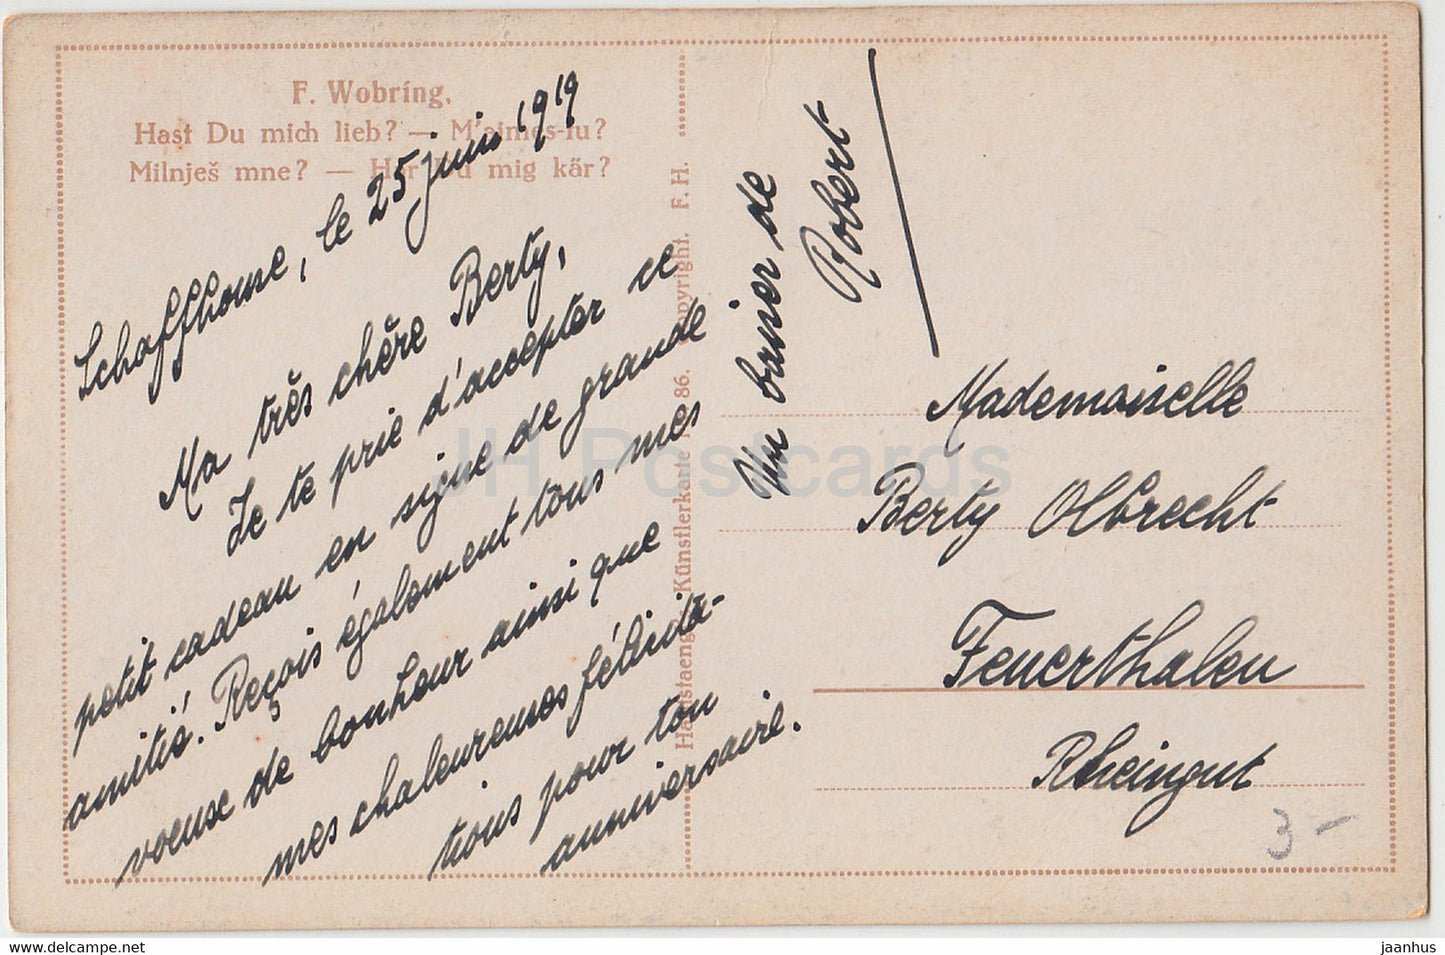 F. Wobring.
Hast Du mich lieb? — M'aimes-tu?
Milnješ mne? — Har Du mig kär?
Schaffhouse, le 25 juin 1919
Ma très chère Berty,
Je te prie d'accepter ce
petit cadeau en signe de grande
amitié. Reçois également tous mes
voeux de bonheur ainsi que
mes chaleureuses félicita-
tions pour ton
anniversaire.
Un baiser de
Robert
Künstlerkarte 86. Copyright. F. H.
Mademoiselle
Berty Olbrecht
Feuerthalen
Rheingut
3 —
JH Postcards
jaanhus